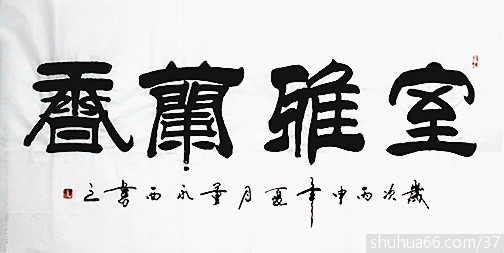 室雅蘭香
歲次丙申年夏月董永西書之
shuhua66.com/37